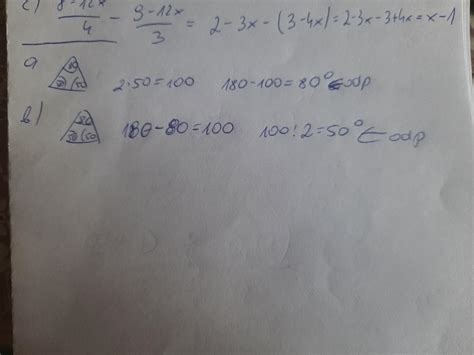 c) 8-12x/4 - 9-12x/3 = 2-3x-(3-4x)=2-3x-3+4x=x-1
a
80
50 50
2·50=100 180-100=80° ← odp
b)
80
50 50
180-80=100 100:2=50° ← odp